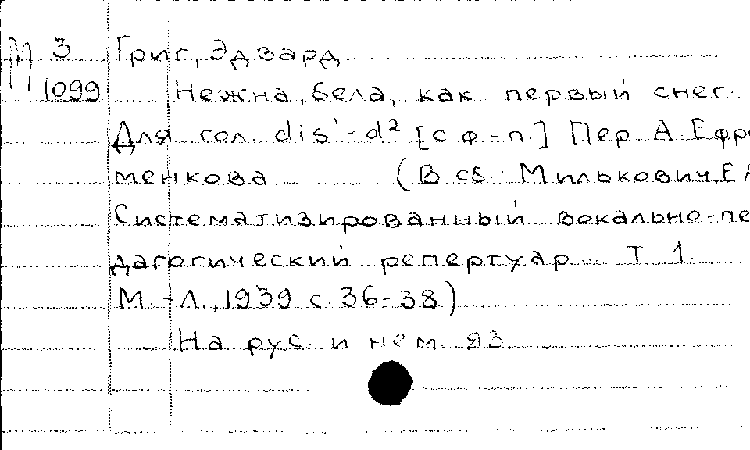 М 3 Григ, Эдвард
1099 Нежна, бела, как первый снег.
Для гол. dis¹-d² [с ф-п.] Пер. А. Ефре
менкова (В сб. Милькович Е.А
Систематизированный вокально-пе
дагогический репертуар. Т. 1.
М.-Л., 1939 с. 36-38)
На рус. и нем. яз.